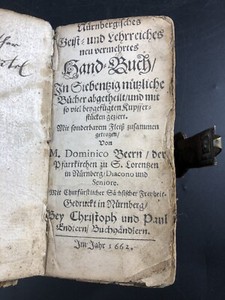 Nürnbergisches
Geist- und Lehrreiches
neu vermehrtes
Hand-Buch/
In Siebentzig nützliche
Bücher abgetheilt/ und mit
so viel beygefügten Kupffer-
stücken gezieret.
Mit sonderbarem Fleiß zusammen
getragen/
Von
M. Dominico Beern/ der
Pfarrkirchen zu S. Lorentzen
in Nürnberg/ Diacono und
Seniore.
Mit Churfürstlicher Sächsischer Freyheit.
Gedruckt in Nürnberg/
Bey Christoph und Paul
Endtern/ Buchhändlern.
Im Jahr 1662.